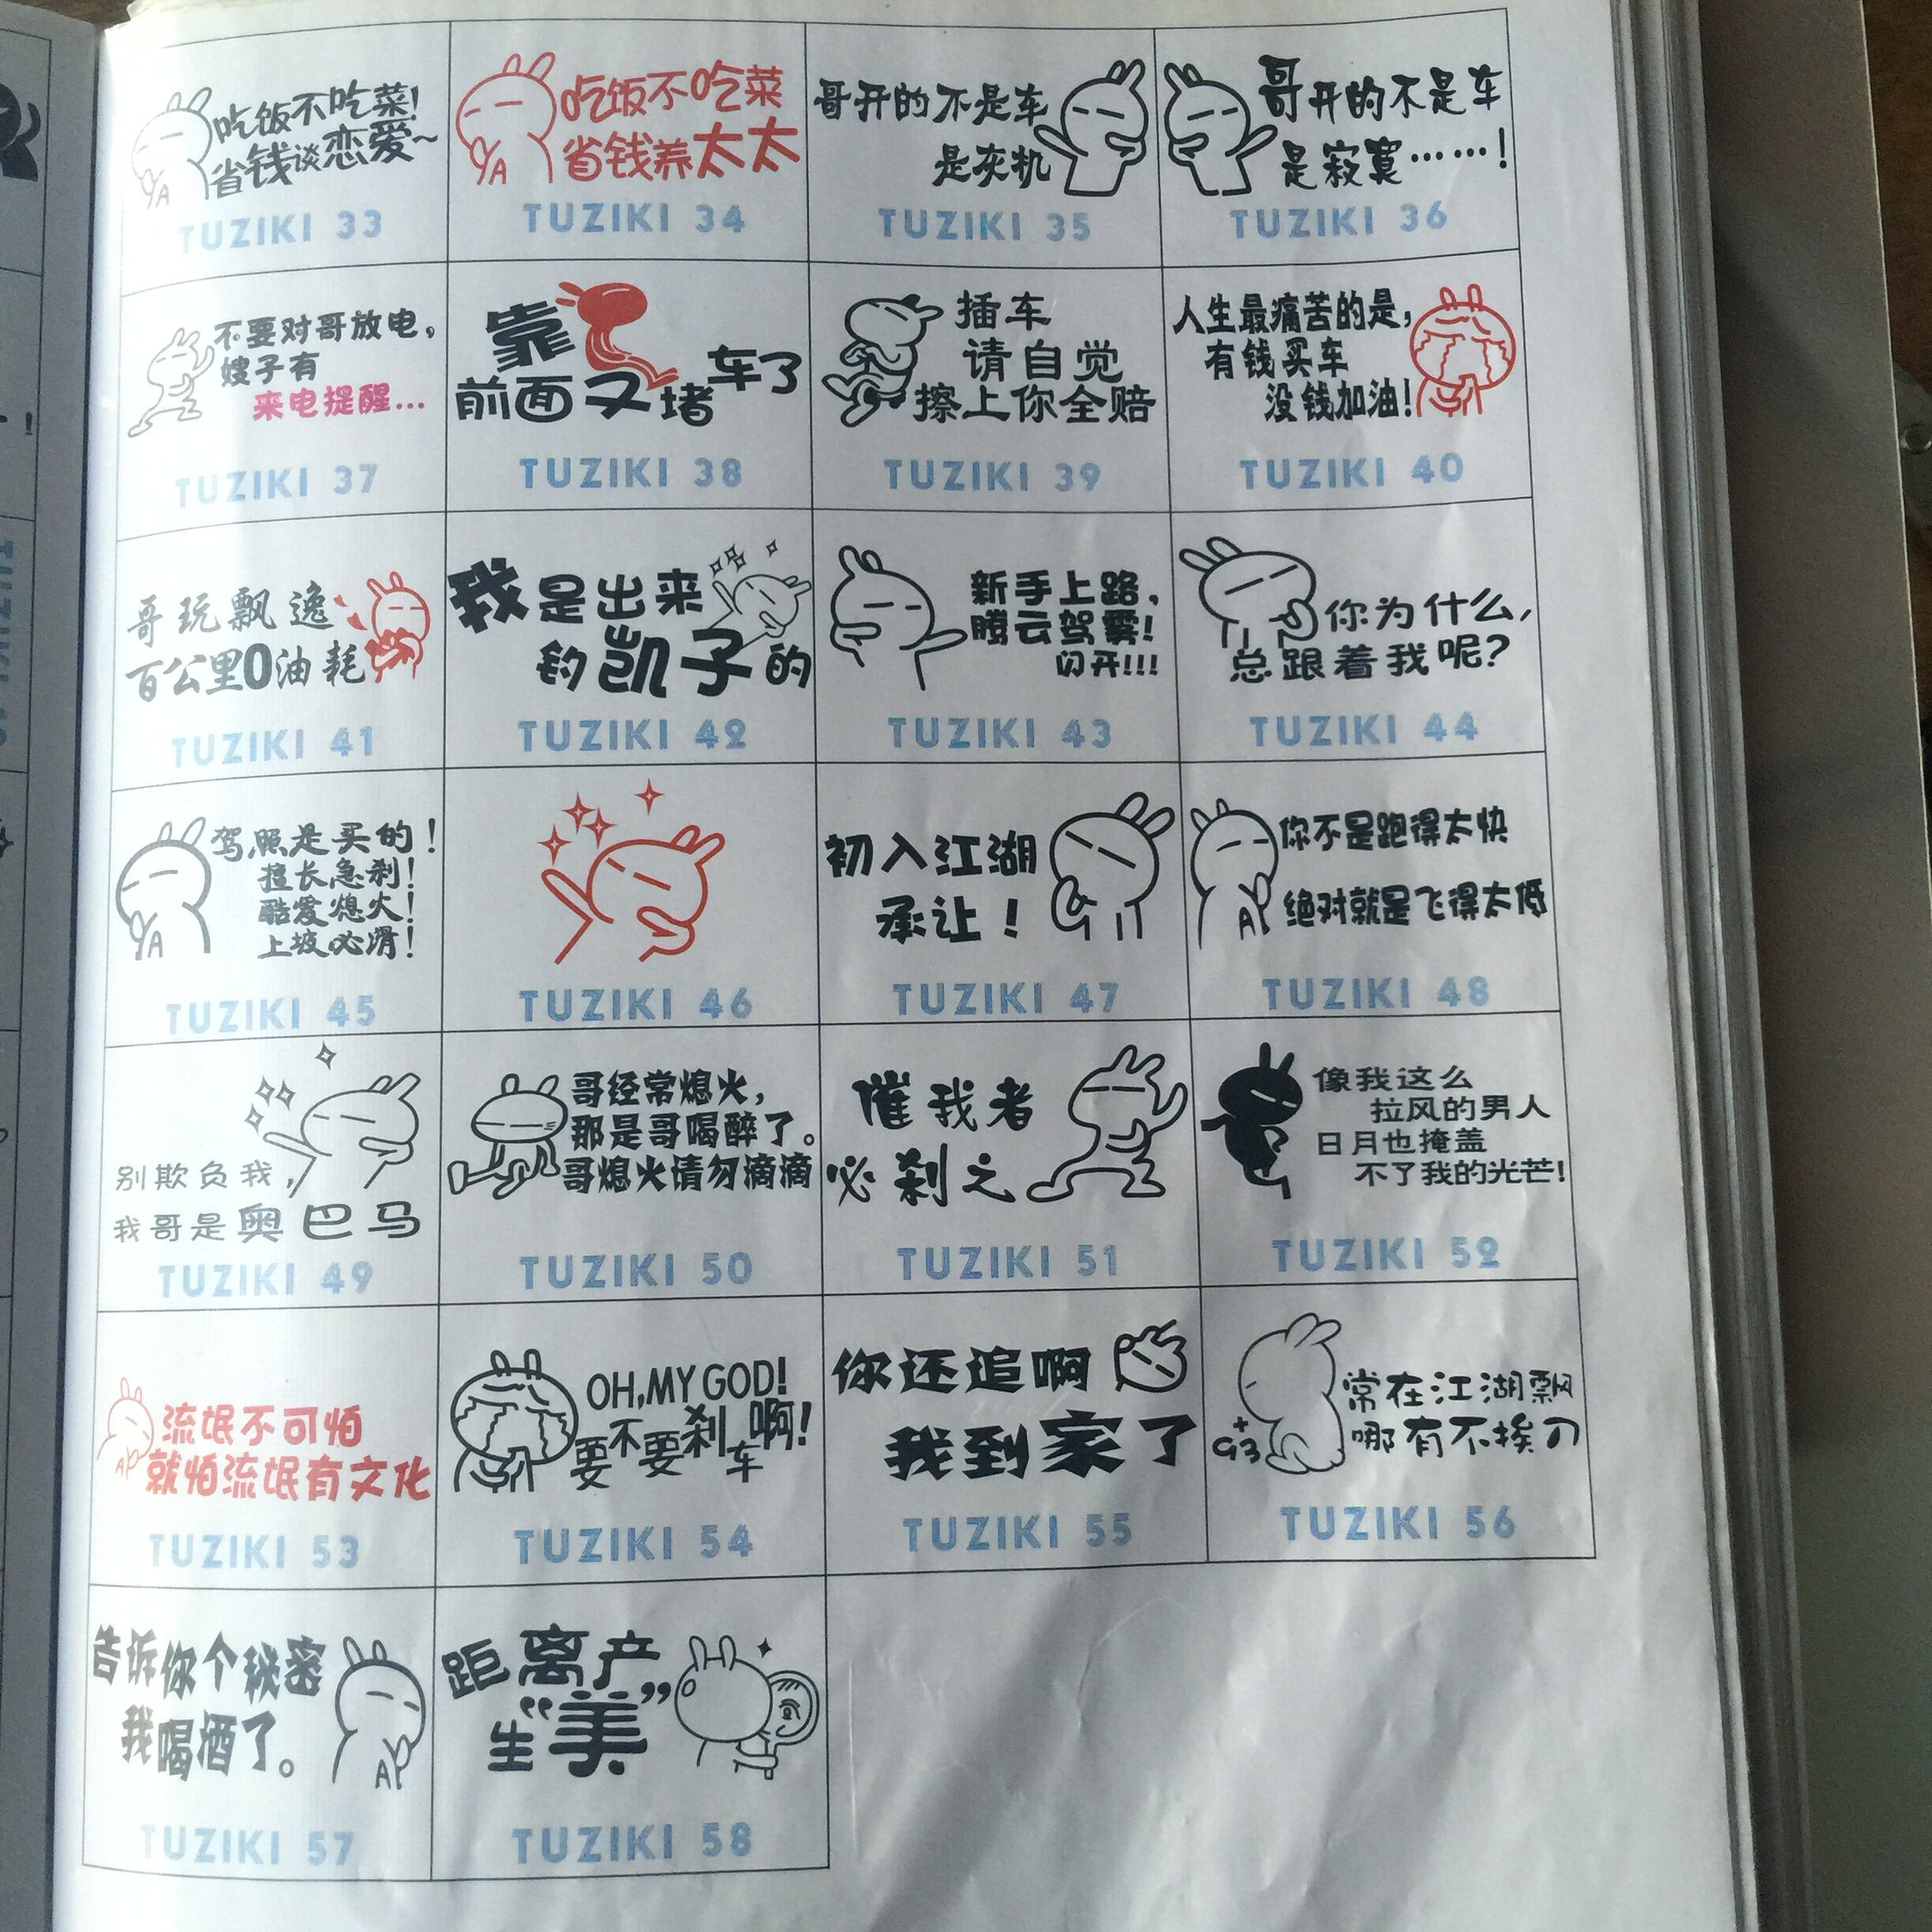 吃饭不吃菜!
省钱谈恋爱~
TUZIKI 33
吃饭不吃菜
省钱养太太
TUZIKI 34
哥开的不是车
是灰机
TUZIKI 35
哥开的不是车
是寂寞……!
TUZIKI 36
不要对哥放电，
嫂子有
来电提醒...
TUZIKI 37
靠
前面又堵车了
TUZIKI 38
插车
请自觉
擦上你全赔
TUZIKI 39
人生最痛苦的是，
有钱买车
没钱加油!
TUZIKI 40
哥玩飘逸
百公里0油耗
TUZIKI 41
我是出来
钓凯子的
TUZIKI 42
新手上路，
腾云驾雾!
闪开!!!
TUZIKI 43
你为什么，
总跟着我呢?
TUZIKI 44
驾照是买的!
擅长急刹!
酷爱熄火!
上坡必滑!
TUZIKI 45
TUZIKI 46
初入江湖
承让!
TUZIKI 47
你不是跑得太快
绝对就是飞得太低
TUZIKI 48
别欺负我，
我哥是奥巴马
TUZIKI 49
哥经常熄火，
那是哥喝醉了。
哥熄火请勿滴滴
TUZIKI 50
催我者
必刹之
TUZIKI 51
像我这么
拉风的男人
日月也掩盖
不了我的光芒!
TUZIKI 52
流氓不可怕
就怕流氓有文化
TUZIKI 53
OH,MY GOD!
要不要刹车啊!
TUZIKI 54
你还追啊
我到家了
TUZIKI 55
常在江湖飘
哪有不挨刀
TUZIKI 56
告诉你个秘密
我喝酒了。
TUZIKI 57
距离产
生“美”
TUZIKI 58